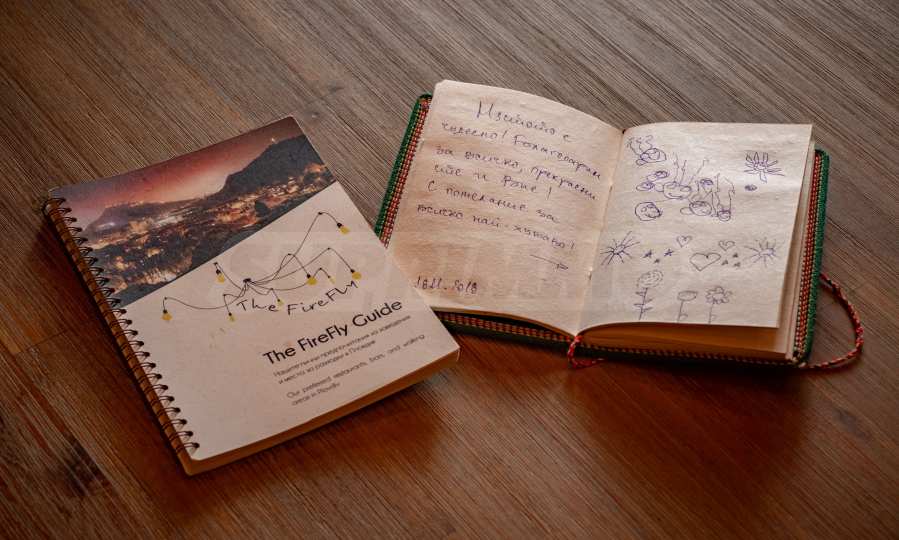 The FireFly
The FireFly Guide
Нашите лични предпочитания на заведения
и места за разходки в Пловдив
Our preferred restaurants, bars, and walking
areas in Plovdiv
чудесно! Благодарим
за всичко, прекрасни
сте и Вие!
С пожелание за
всичко най-хубаво!
.2018